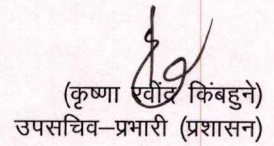 (कृष्णा रवींद्र किंबहुने)
उपसचिव–प्रभारी (प्रशासन)